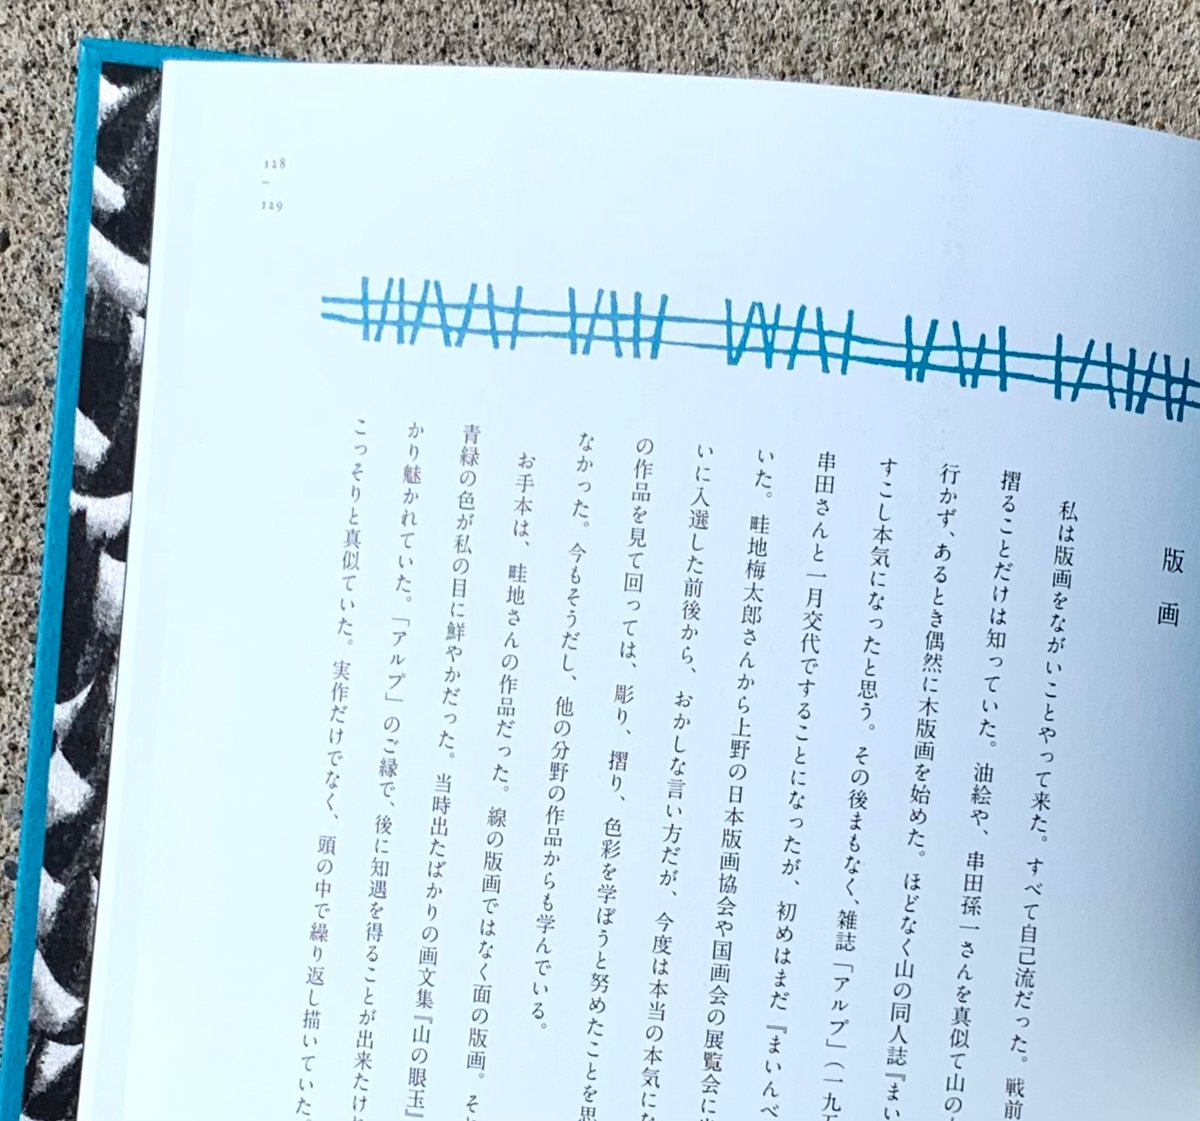 128
–
129
版画
私は版画をながいことやって来た。すべて自己流だった。戦前
摺ることだけは知っていた。油絵や、串田孫一さんを真似て山の
行かず、あるとき偶然に木版画を始めた。ほどなく山の同人誌『まい
すこし本気になったと思う。その後まもなく、雑誌「アルプ」（一九五
串田さんと一月交代ですることになったが、初めはまだ『まいんべ
いた。畦地梅太郎さんから上野の日本版画協会や国画会の展覧会に
いに入選した前後から、おかしな言い方だが、今度は本当の本気にな
の作品を見て回っては、彫り、摺り、色彩を学ぼうと努めたことを思
なかった。今もそうだし、他の分野の作品からも学んでいる。
お手本は、畦地さんの作品だった。線の版画ではなく面の版画。そ
青緑の色が私の目に鮮やかだった。当時出たばかりの画文集『山の眼玉』
かり魅かれていた。「アルプ」のご縁で、後に知遇を得ることが出来たけ
こっそりと真似ていた。実作だけでなく、頭の中で繰り返し描いていた。